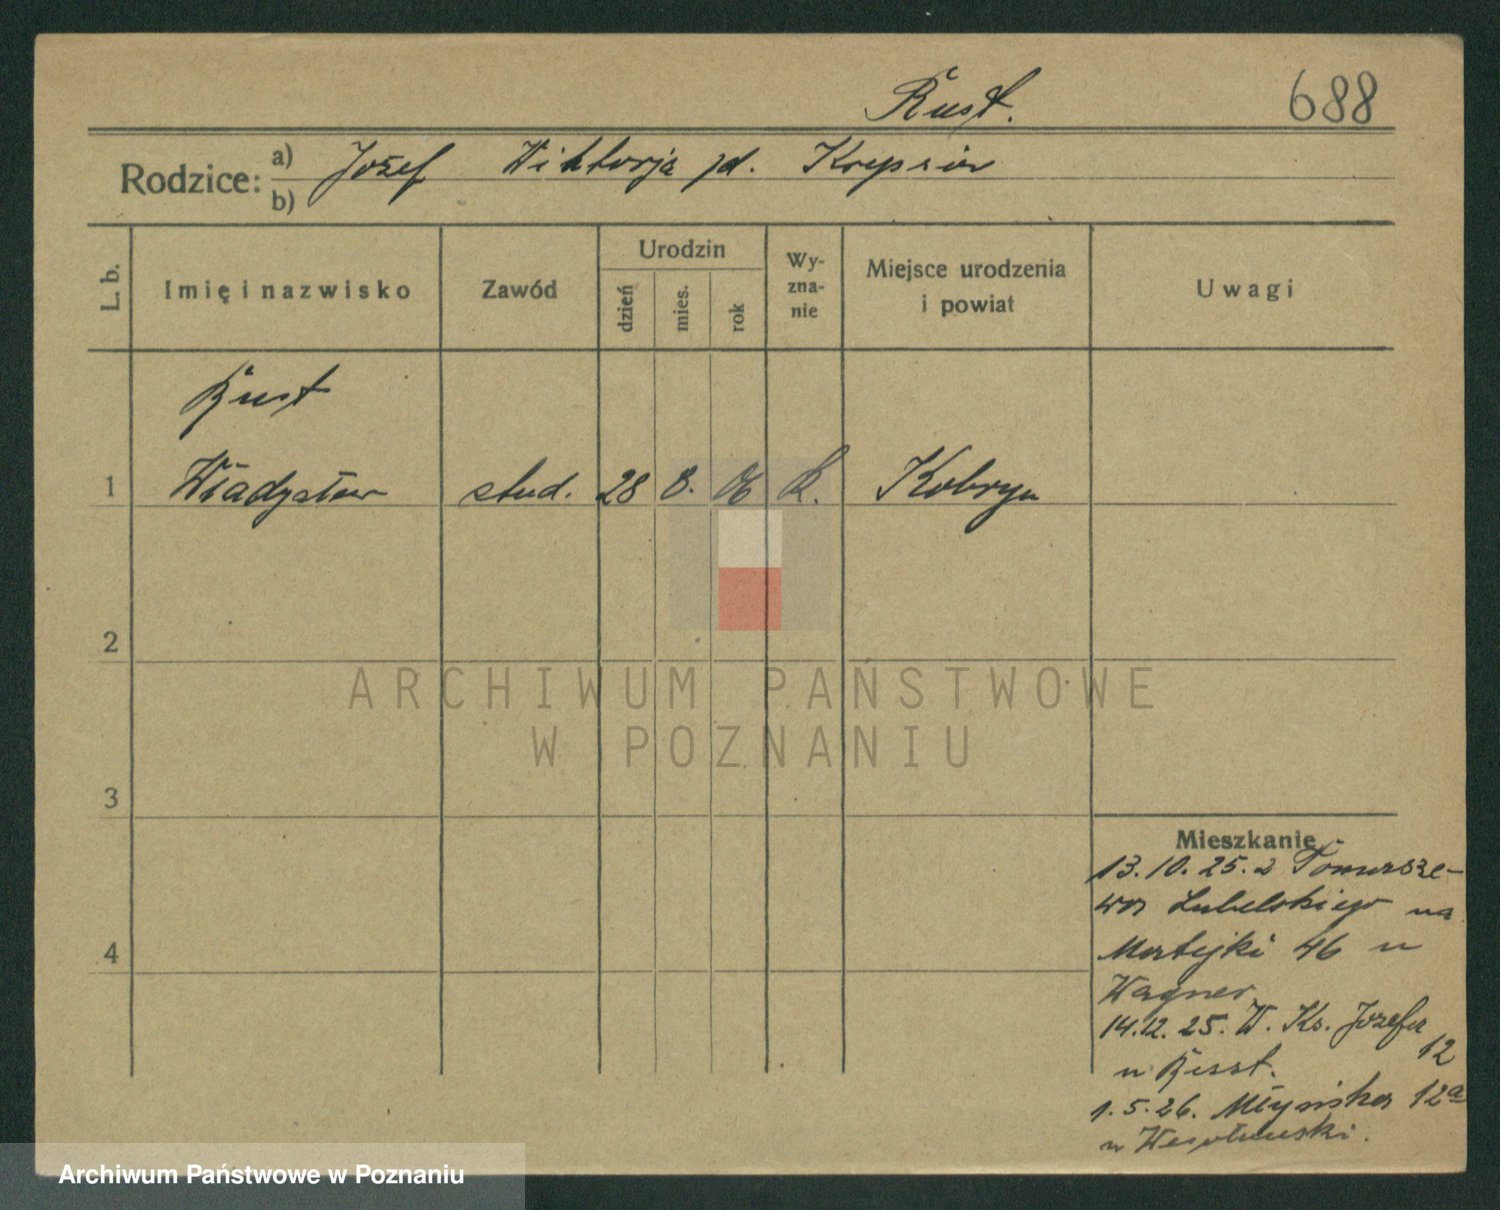 Rust.
688
Rodzice: a) Józef Wiktorja zd.
b)
L. b.
Imię i nazwisko
Zawód
Urodzin
dzień
mies.
rok
Wy-
zna-
nie
Miejsce urodzenia
i powiat
Uwagi
Rust
1 Władysław stud. 28 8. 06 k. Kobryn
2
3
4
Mieszkanie
13.10.25. z Tomasze-
wa Lubelskiego na
Matejki 46 u
Wagner
14.12.25. W. Ks. Józefa
12
u
1.5.26. Młyńska 12a
u
ARCHIWUM PAŃSTWOWE
W POZNANIU
Archiwum Państwowe w Poznaniu